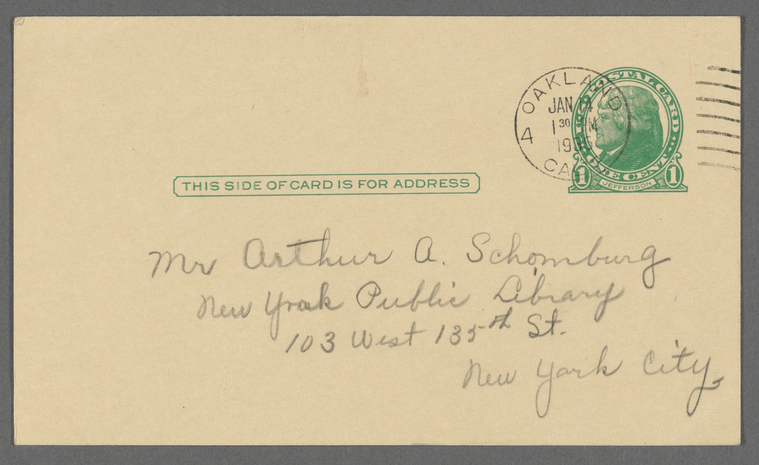 OAKLAND
JAN
1 30 M
4
CA
U.S. POSTAL CARD
ONE CENT
1 JEFFERSON 1
THIS SIDE OF CARD IS FOR ADDRESS
Mr Arthur A. Schomburg
New York Public Library
103 West 135th St.
New York City